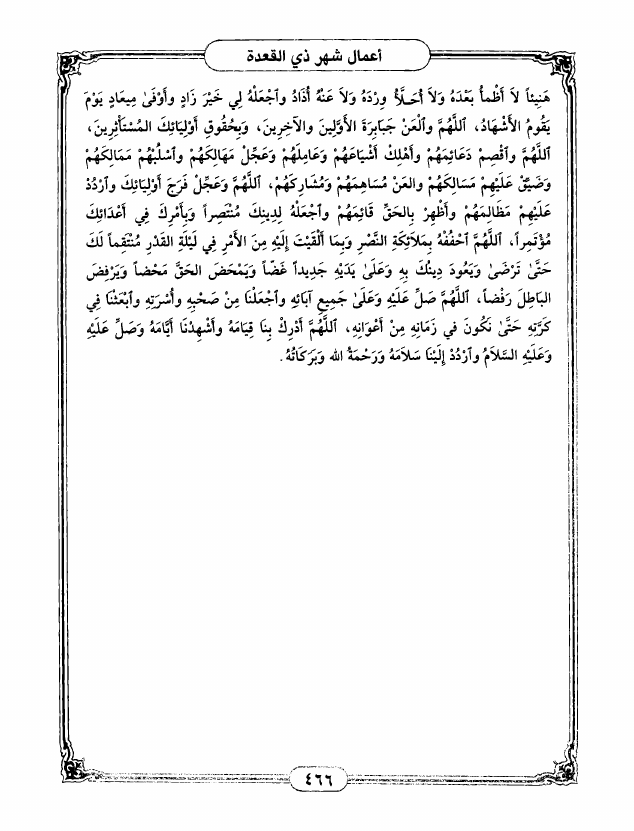 أعمال شهر ذي القعدة
هَنِيئاً لاَ أَظْمأُ بَعْدَهُ وَلاَ أُحَلَّأُ وِرْدَهُ وَلاَ عَنْهُ أُذَادُ وٱجْعَلْهُ لِي خَيْرَ زَادٍ وأَوْفَىٰ مِيعَادٍ يَوْمَ
يَقُومُ الأَشْهَادُ، اَللَّهُمَّ وٱلْعَنْ جَبَابِرَةَ الأَوَّلِينَ والآخِرِينَ، وَبِحُقُوقِ أَوْلِيَائِكَ المُسْتَأْثِرِينَ،
اَللَّهُمَّ وٱقْصِمْ دَعَائِمَهُمْ وأَهْلِكْ أَشْيَاعَهُمْ وَعَامِلَهُمْ وَعَجِّلْ مَهَالِكَهُمْ وٱسْلُبْهُمْ مَمَالِكَهُمْ
وَضَيِّقْ عَلَيْهِمْ مَسَالِكَهُمْ والعَنْ مُسَاهِمَهُمْ وَمُشَارِكَهُمْ، اَللَّهُمَّ وَعَجِّلْ فَرَجَ أَوْلِيَائِكَ وٱرْدُدْ
عَلَيْهِمْ مَظَالِمَهُمْ وأَظْهِرْ بِالحَقِّ قَائِمَهُمْ وٱجْعَلْهُ لِدِينِكَ مُنْتَصِراً وَبِأَمْرِكَ فِي أَعْدَائِكَ
مُؤْتَمِراً، اَللَّهُمَّ ٱحْفُفْهُ بِمَلاَئِكَةِ النَّصْرِ وَبِمَا أَلْقَيْتَ إِلَيْهِ مِنَ الأَمْرِ فِي لَيْلَةِ القَدْرِ مُنْتَقِماً لَكَ
حَتَّىٰ تَرْضَىٰ وَيَعُودَ دِينُكَ بِهِ وَعَلَىٰ يَدَيْهِ جَدِيداً غَضّاً وَيَمْحَضَ الحَقَّ مَحْضاً وَيَرْفِضَ
البَاطِلَ رَفْضاً، اَللَّهُمَّ صَلِّ عَلَيْهِ وَعَلَىٰ جَمِيعِ آبَائِهِ وٱجْعَلْنَا مِنْ صَحْبِهِ وأُسْرَتِهِ وٱبْعَثْنَا فِي
كَرَّتِهِ حَتَّىٰ نَكُونَ فِي زَمَانِهِ مِنْ أَعْوَانِهِ، اَللَّهُمَّ أَدْرِكْ بِنَا قِيَامَهُ وأَشْهِدْنَا أَيَّامَهُ وَصَلِّ عَلَيْهِ
وَعَلَيْهِ السَّلاَمُ وٱرْدُدْ إِلَيْنَا سَلاَمَهُ وَرَحْمَةُ الله وَبَرَكَاتُهُ.
٤٦٦